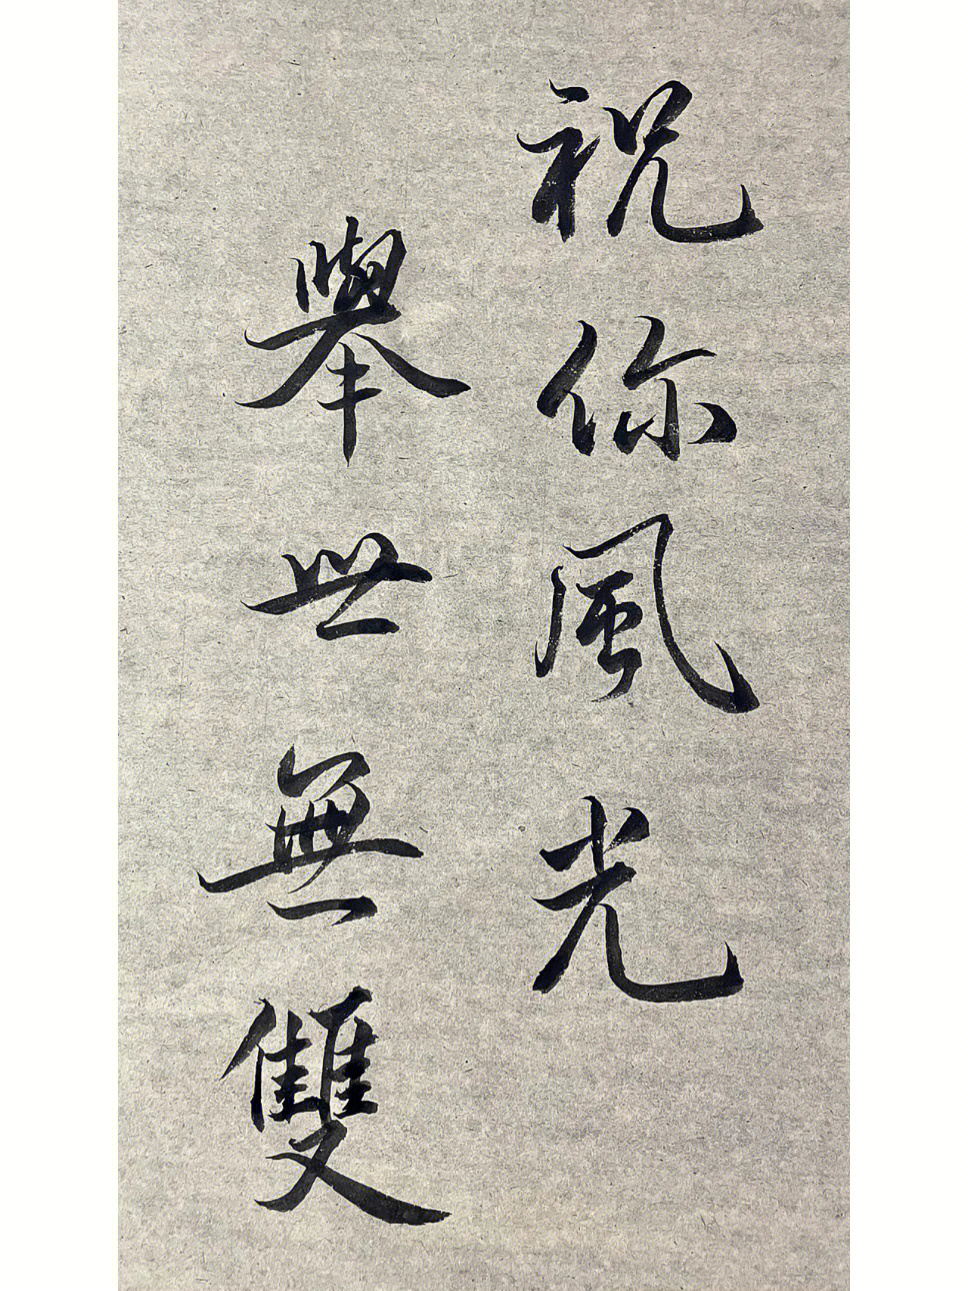 祝你風光
舉世無雙